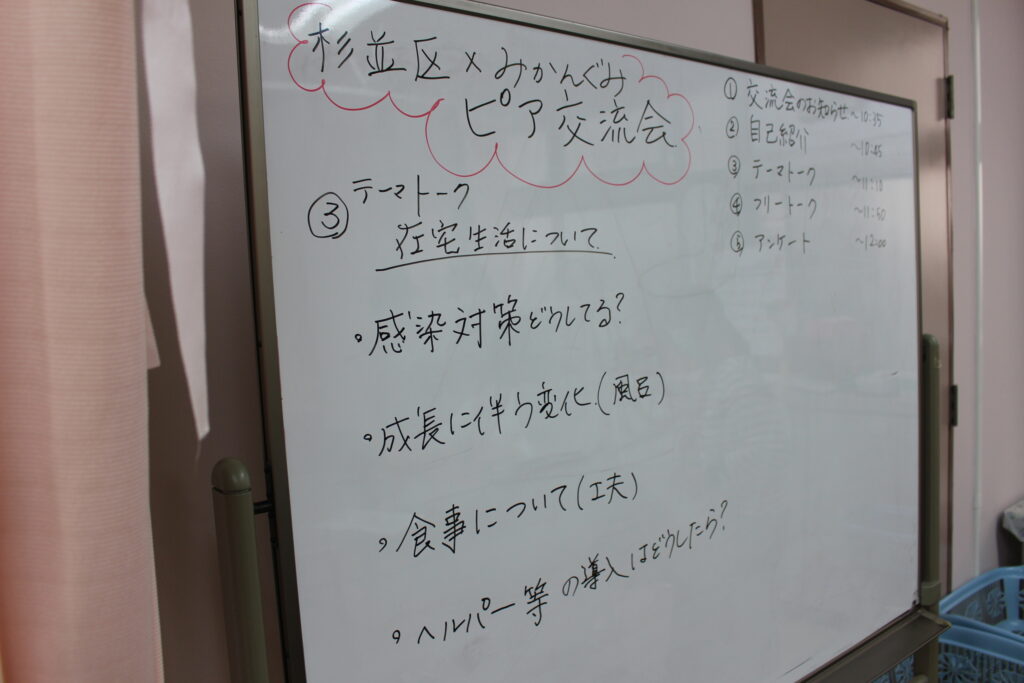 杉並区×みかんぐみ
ピア交流会
① 交流会のお知らせ ～10:35
② 自己紹介 ～10:45
③ テーマトーク ～11:10
④ フリートーク ～11:50
⑤ アンケート ～12:00
③ テーマトーク
在宅生活について
・感染対策どうしてる?
・成長に伴う変化(風呂)
・食事について(工夫)
・ヘルパー等の導入はどうしたら?